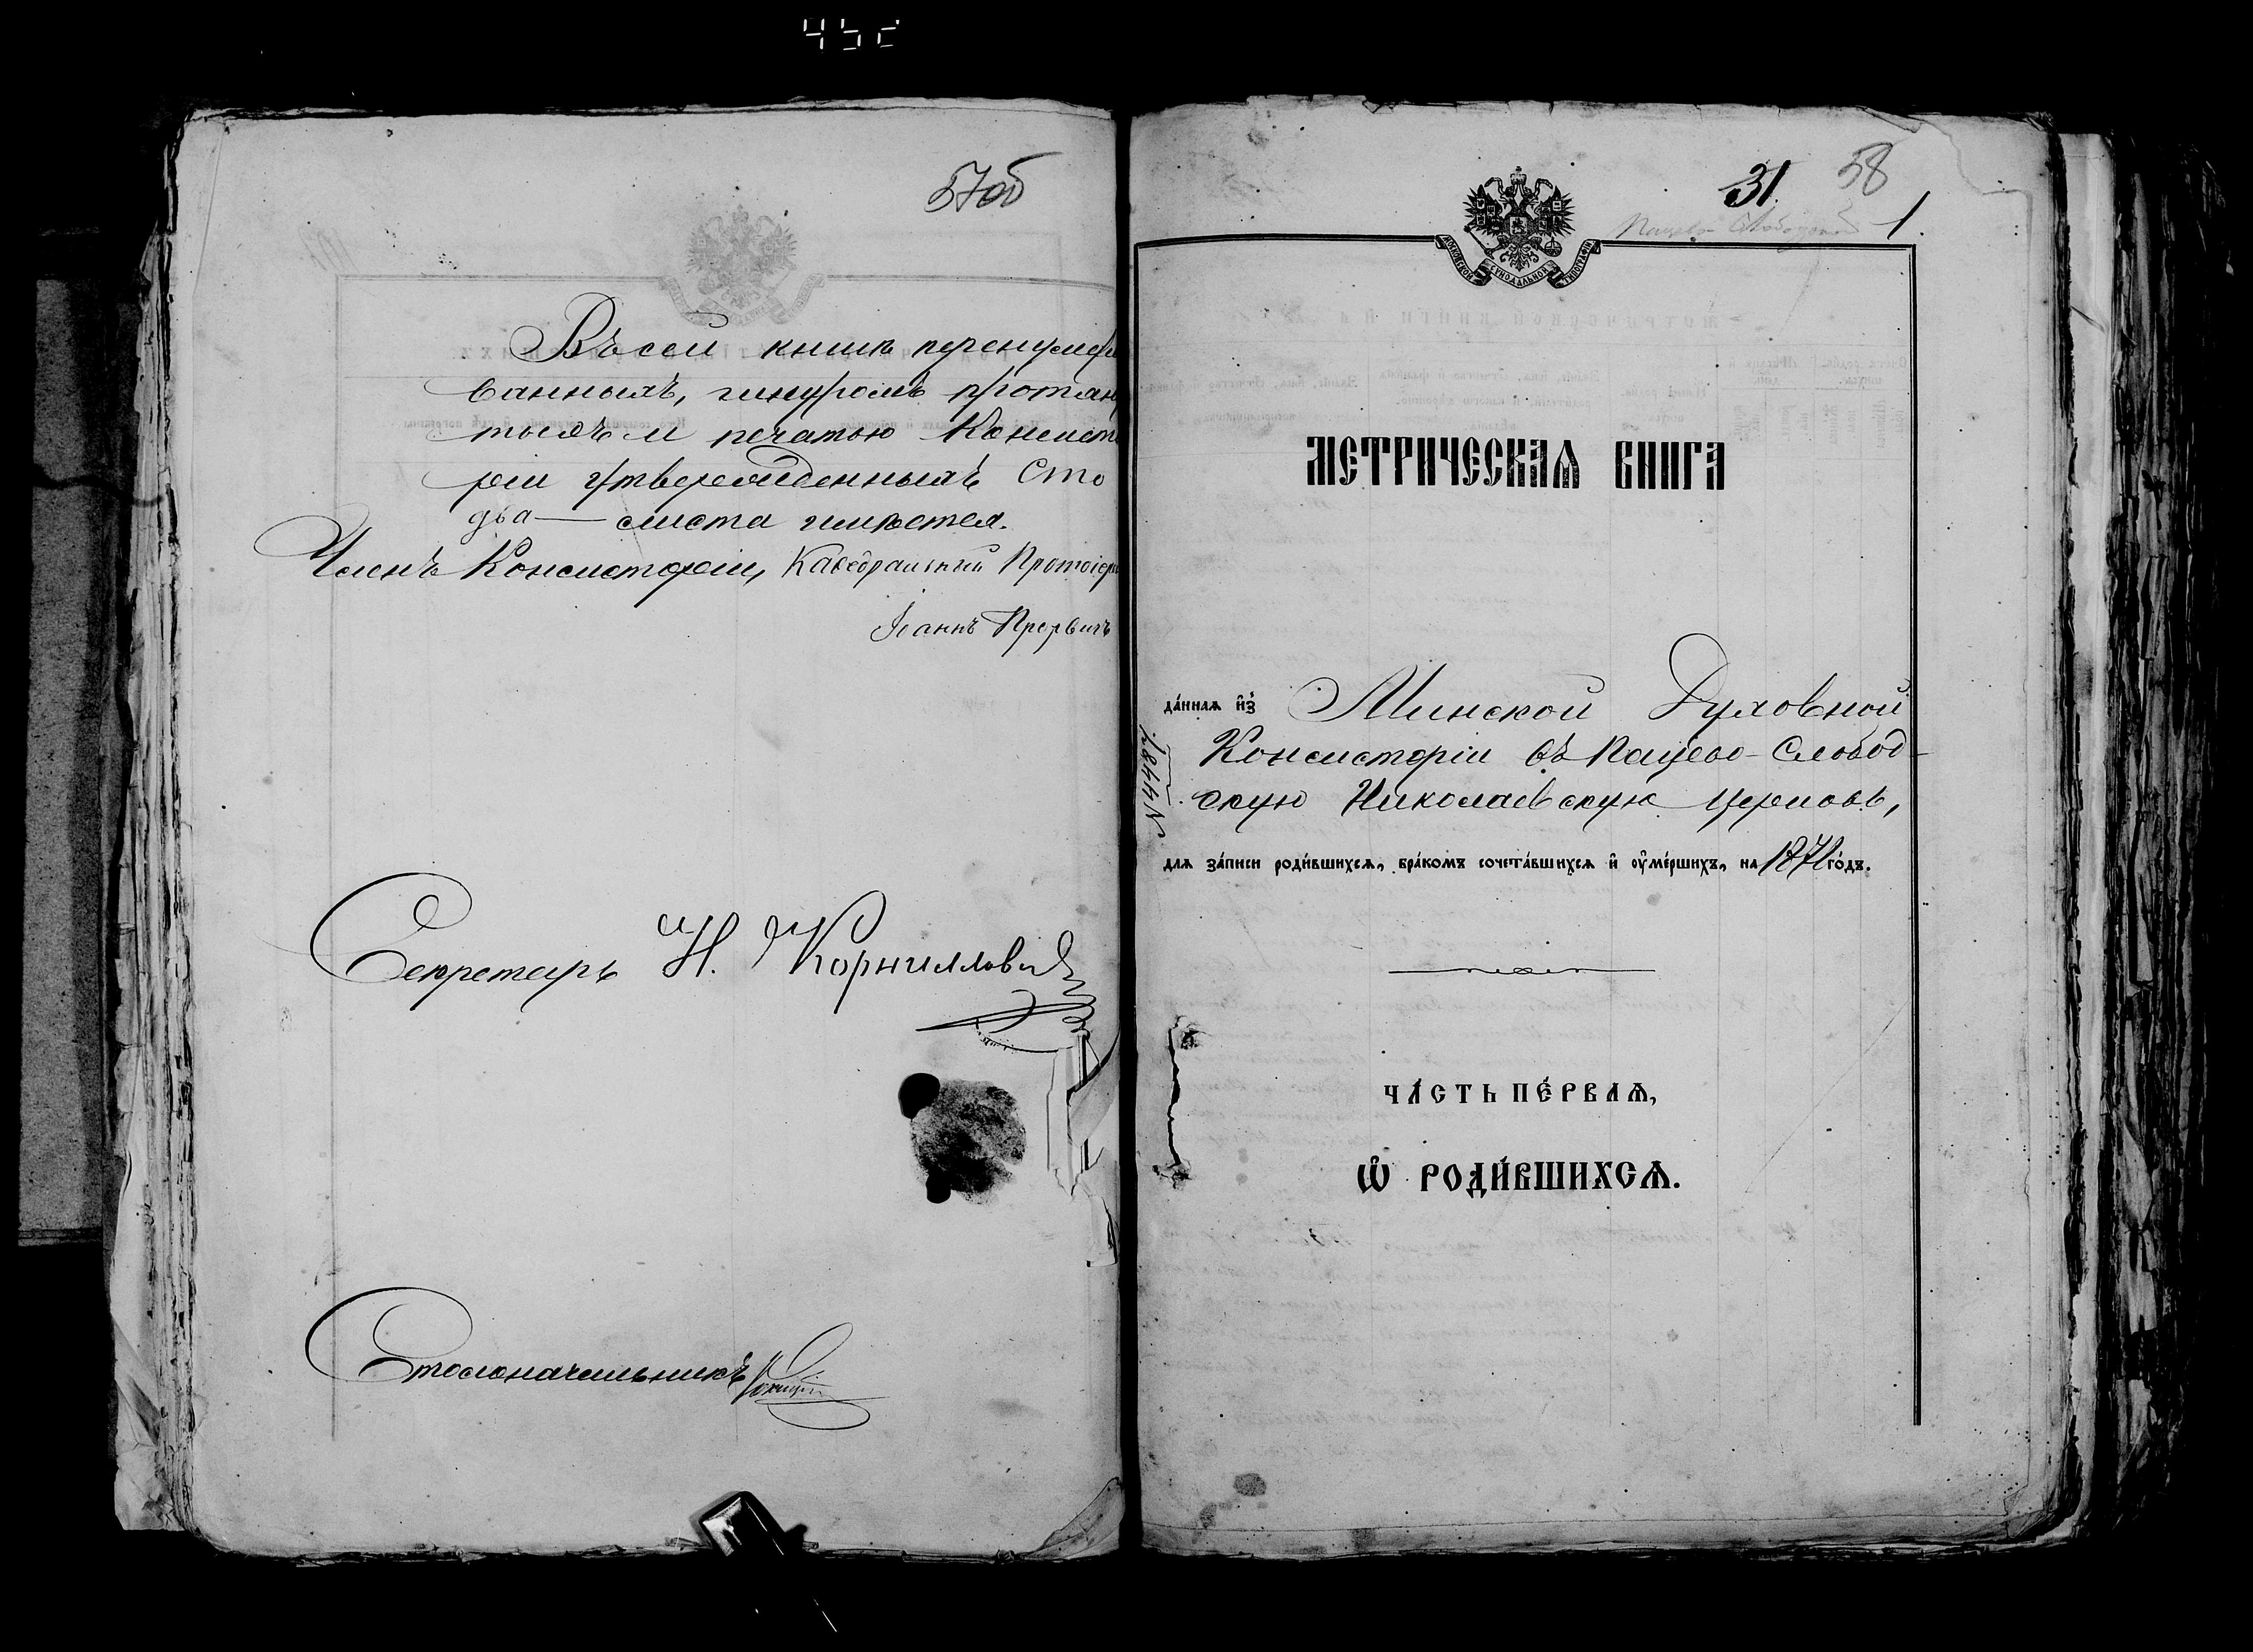 57об
Въ сей книге перенумеро
ванныхъ, шнуромъ протян
тыхъ и печатью Консисто
ріи утвержденныхъ Сто
два — листа имѣется.
Членъ Консисторіи, Каѳедральный Протоіер
Іоаннъ Прорвичъ
Секретарь Н. Корниллович
Столоначальникъ
31. 58
1.
МОСКОВСКОЙ СУНОДАЛЬНОЙ ТИПОГРАФІИ
МЕТРИЧЕСКАѦ КНИГА
да́ннаѧ и҆зъ Минской Духовной
Консисторіи въ Пацево-Слобод-
скую Николаевскую церковь,
для за́писи роди́вшихсѧ, бра́комъ сочета́вшихсѧ и҆ ᲂу҆ме́ршихъ, на 1871 го́дъ.
ЧА́СТЬ ПЕ́РВАѦ,
Ѽ РОДИ́ВШИХСѦ.